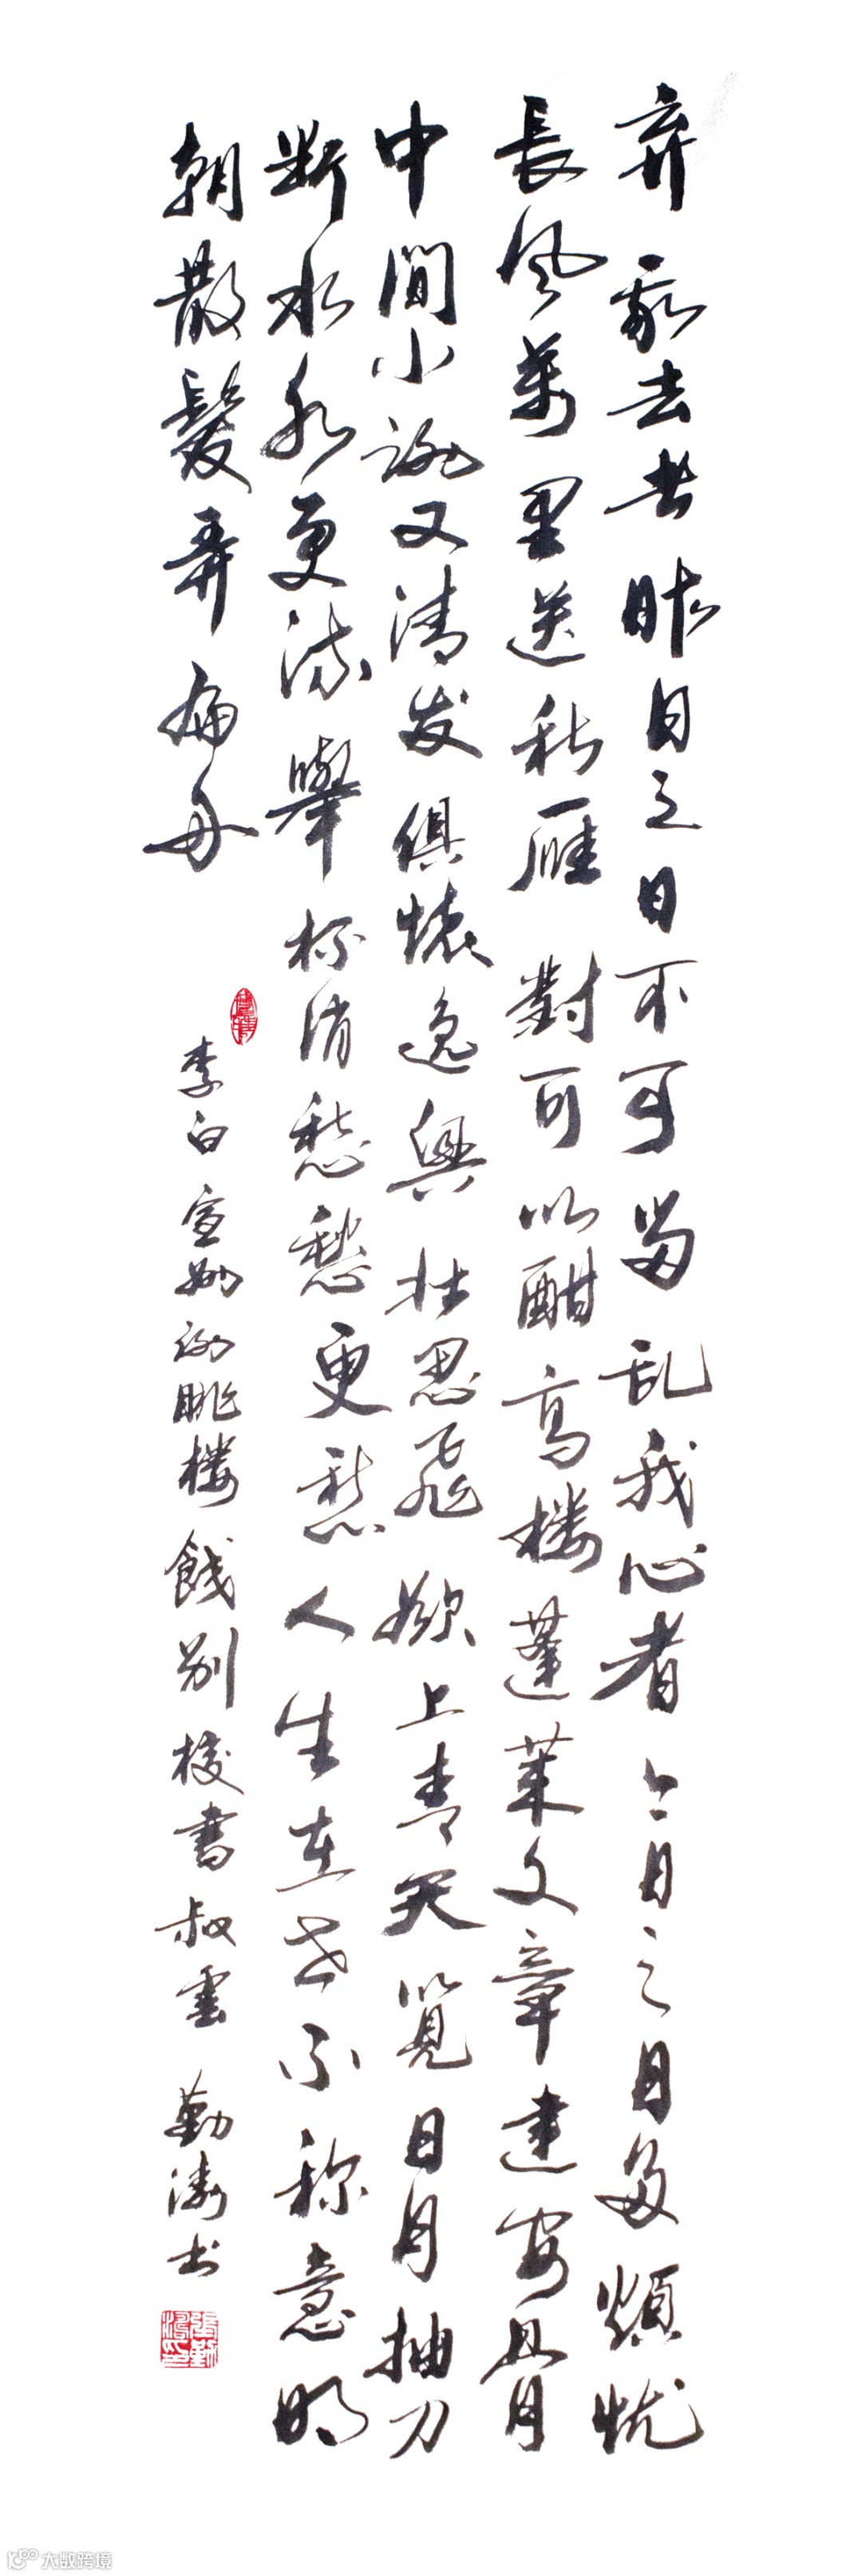 弃我去者昨日之日不可留乱我心者今日之日多煩忧
長风萬里送秋雁對可以酣高楼蓬莱文章建安骨
中間小谢又清发俱懷逸興壮思飛欲上青天覽日月抽刀
断水水更流舉杯消愁愁更愁人生在世不称意明
朝散髮弄扁舟
李白宣州谢眺楼餞别校書叔雲 勤涛书
大数跨境